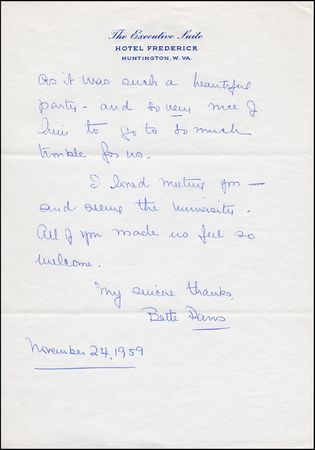 The Executive Suite
HOTEL FREDERICK
HUNTINGTON, W. VA.
As it was such a beautiful
party - and so very nice of
him to go to so much
trouble for us.
I loved meeting you —
and seeing the University.
All of you made us feel so
welcome.
My sincere thanks,
Bette Davis
November 24, 1959